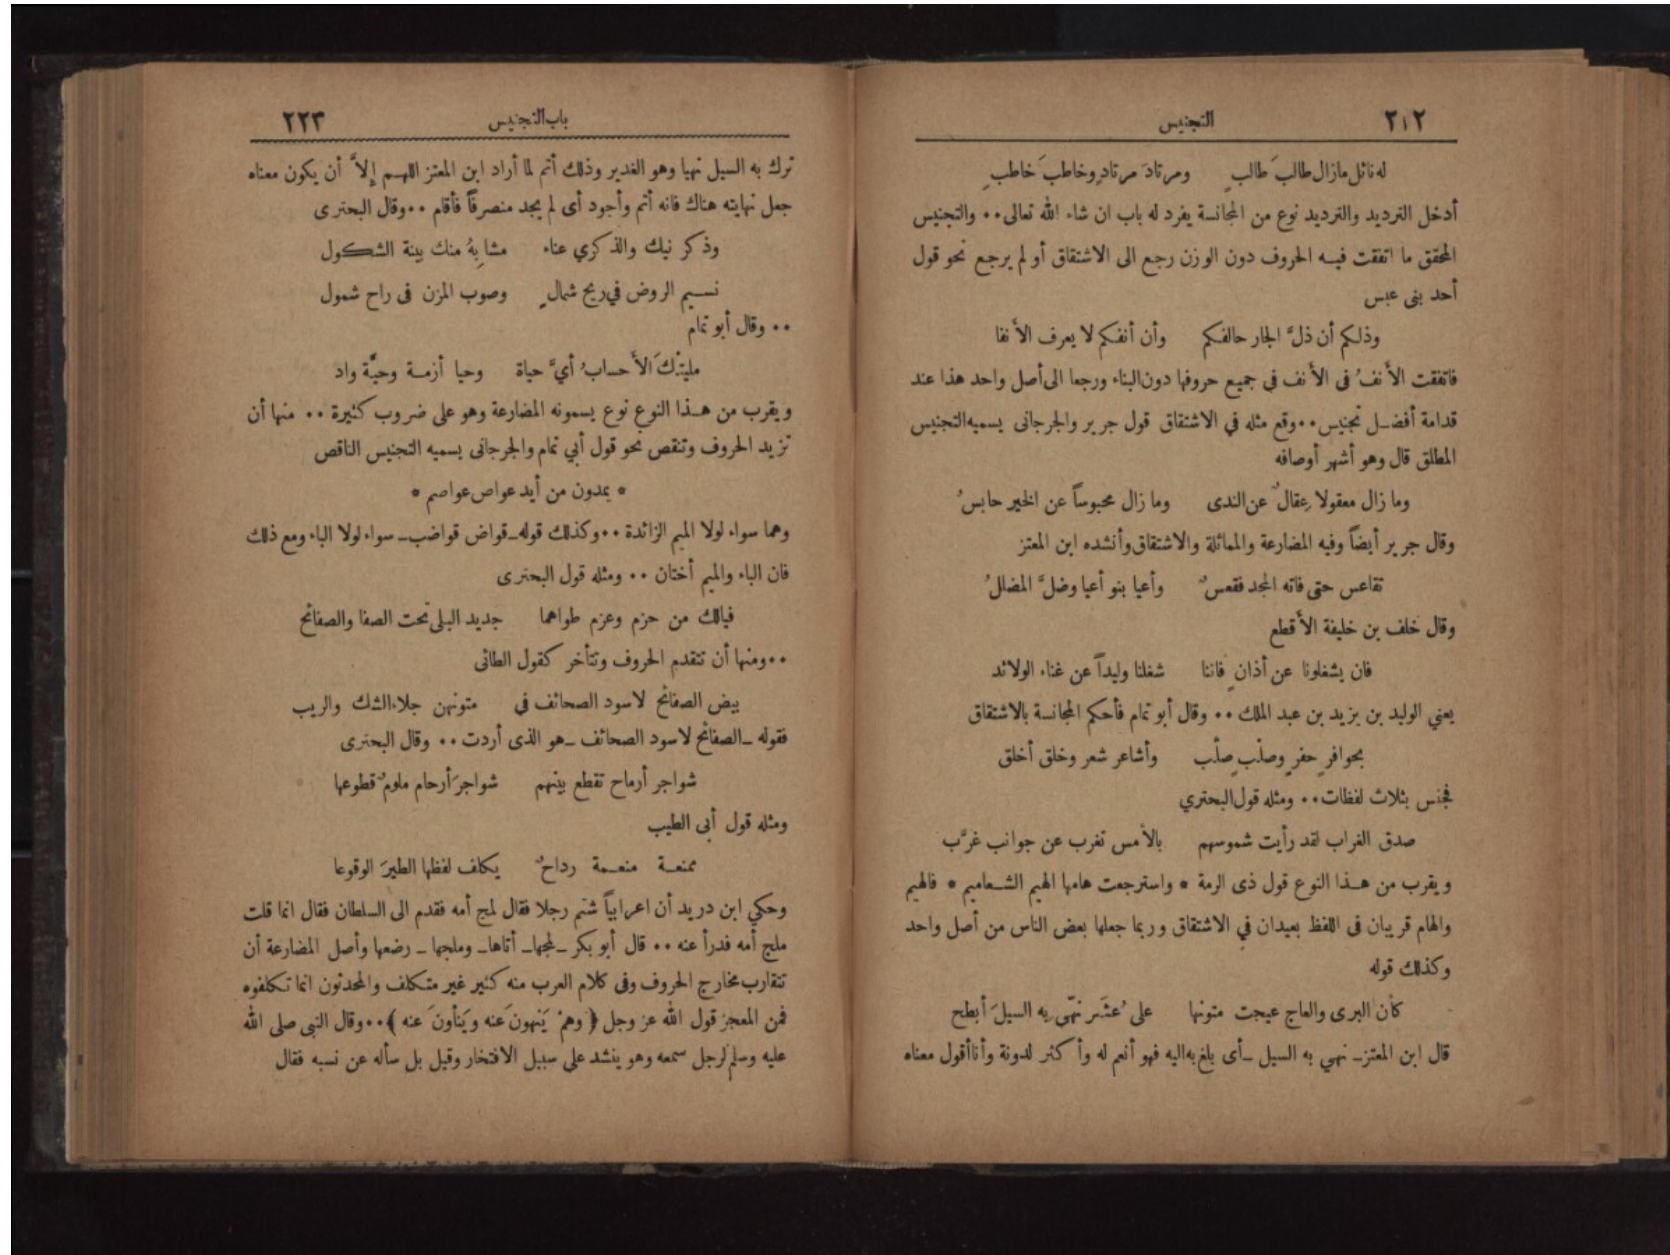 ٢١٢ التجنيس
له نائل مازال طالبَ طالبٍ ومرتادَ مرتادٍ وخاطبَ خاطبٍ
أدخل الترديد والترديد نوع من المجانسة يفرد له باب ان شاء الله تعالى٠٠ والتجنيس
المحقق ما اتفقت فيه الحروف دون الوزن رجع الى الاشتقاق أو لم يرجع نحو قول
أحد بنى عبس
وذلكم أن ذلَّ الجار حالفكم وأن أنفكم لا يعرف الأنفا
فاتفقت الأنفُ فى الأنف في جميع حروفها دون البناء ورجعا الى أصل واحد هذا عند
قدامة أفضل تجنيس٠٠ وقع مثله في الاشتقاق قول جرير والجرجانى يسميه التجنيس
المطلق قال وهو أشهر أوصافه
وما زال معقولا عِقالٌ عن الندى وما زال محبوساً عن الخير حابسُ
وقال جرير أيضاً وفيه المضارعة والمماثلة والاشتقاق وأنشده ابن المعتز
تقاعس حتى فاته المجد فقعسٌ وأعيا بنو أعيا وضلَّ المضللُ
وقال خلف بن خليفة الأقطع
فان يشغلونا عن أذان فاننا شغلنا وليداً عن غناء الولائد
يعني الوليد بن يزيد بن عبد الملك ٠٠ وقال أبو تمام فأحكم المجانسة بالاشتقاق
بحوافرٍ حفرٍ وصلبٍ صلّب وأشاعر شعر وخلق أخلق
فجنس بثلاث لفظات٠٠ ومثله قول البحتري
صدق الغراب لقد رأيت شموسهم بالأمس تغرب عن جوانب غرَّب
ويقرب من هذا النوع قول ذى الرمة * واسترجعت هامها الهيم الشعاميم * فالهيم
والهام قريبان فى اللفظ بعيدان في الاشتقاق وربما جعلها بعض الناس من أصل واحد
وكذلك قوله
كأن البرى والعاج عيجت متونها على عُشَر نهّى به السيلَ أبطح
قال ابن المعتز_ نهي به السيل _أى بلغ به اليه فهو أنعم له وأكثر لدونة وأنا أقول معناه
باب التجنيس ٢٢٣
ترك به السيل نهيا وهو الغدير وذلك أتم لما أراد ابن المعتز اللهم إلاَّ أن يكون معناه
جعل نهايته هناك فانه أتم وأجود أى لم يجد منصرفاً فأقام ٠٠ وقال البحترى
وذكر نيك والذكري عناء مشابِهُ منك بينة الشكول
نسيم الروض في ريح شمالٍ وصوب المزن فى راح شمول
٠٠ وقال أبو تمام
مليتكَ الأحسابُ أيَّ حياة وحيا أزمة وحيَّة واد
ويقرب من هذا النوع نوع يسمونه المضارعة وهو على ضروب كثيرة ٠٠ منها أن
تزيد الحروف وتنقص نحو قول أبي تمام والجرجانى يسميه التجنيس الناقص
* يمدون من أيد عواص عواصم *
وهما سواء لولا الميم الزائدة ٠٠ وكذلك قوله_قواض قواضب_ سواء لولا الباء ومع ذلك
فان الباء والميم أختان ٠٠ ومثله قول البحترى
فيالك من حزم وعزم طواهما جديد البلى تحت الصفا والصفائح
٠٠ ومنها أن تتقدم الحروف وتتأخر كقول الطائى
بيض الصفائح لاسود الصحائف في متونهن جلاء الشك والريب
فقوله _الصفائح لاسود الصحائف _هو الذى أردت ٠٠ وقال البحترى
شواجر أرماح تقطع بينهم شواجرَ أرحام ملومٌ قطوعها
ومثله قول أبى الطيب
ممنعة منعمة رداحٌ يكلف لفظها الطيرَ الوقوعا
وحكي ابن دريد أن اعرابياً شتم رجلا فقال لمج أمه فقدم الى السلطان فقال انما قلت
ملج أمه فدرأ عنه ٠٠ قال أبو بكر _لمجها_ أتاها_ وملجها _ رضعها وأصل المضارعة أن
تتقارب مخارج الحروف وفى كلام العرب منه كثير غير متكلف والمحدثون انما تكلفوه
فمن المعجز قول الله عز وجل ﴿وهمْ يَنهونَ عنه ويَنأونَ عنه﴾٠٠ وقال النبى صلى الله
عليه وسلم لرجل سمعه وهو ينشد على سبيل الافتخار وقيل بل سأله عن نسبه فقال